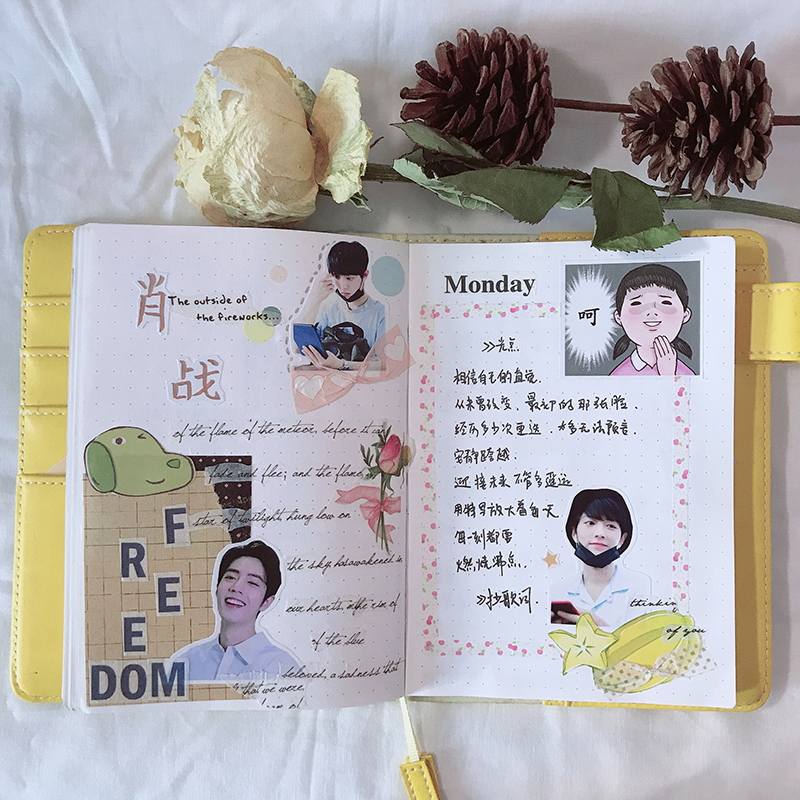 肖
战
The outside of
the fireworks...
of the flame of the meteor, before it can
fade and flee; and the flame
star of twilight, hung low on
the sky, hasawakened in
our hearts, inthe rim of
of the blue
beloved, a sadness that
that we were
FREEDOM
Monday
呵
>>光点
相信自己的直觉.
从未曾改变、最初的那张脸.
经历多少次重逢、太多无法预言.
安静跨越
迎接未来不管多遥远
用特写放大着每天
每一刻都要
燃烧沸点.
>>抄歌词.
thinking
of you